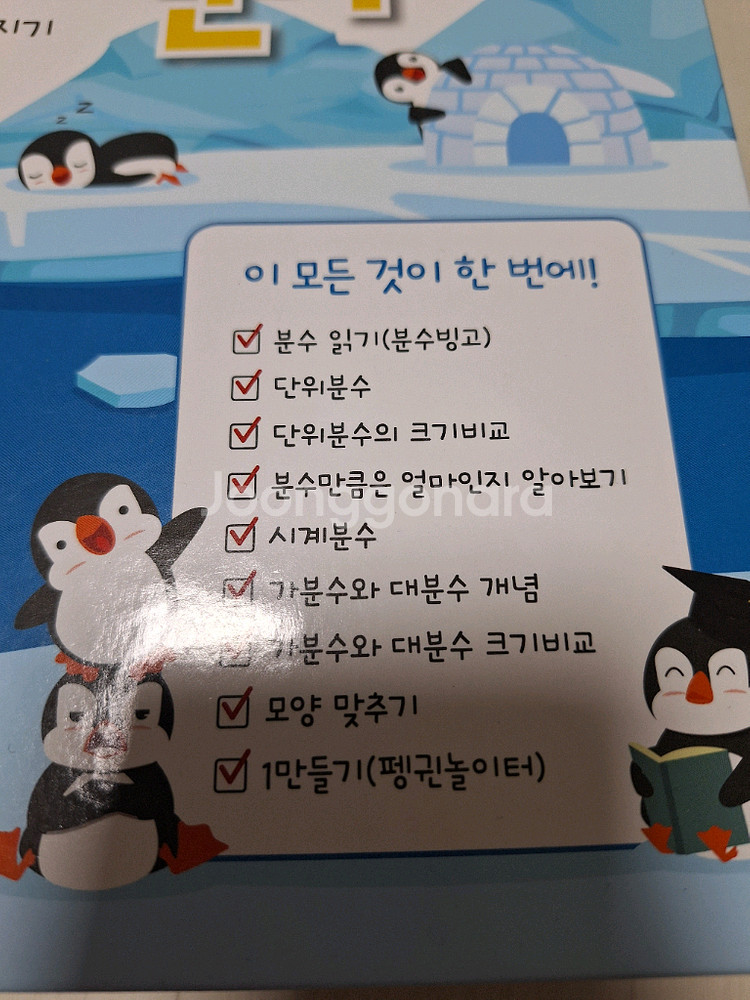 지기
z z
이 모든 것이 한 번에!
분수 읽기(분수빙고)
단위분수
단위분수의 크기비교
분수만큼은 얼마인지 알아보기
Joonggonara
시계분수
가분수와 대분수 개념
가분수와 대분수 크기비교
모양 맞추기
1만들기(펭귄놀이터)